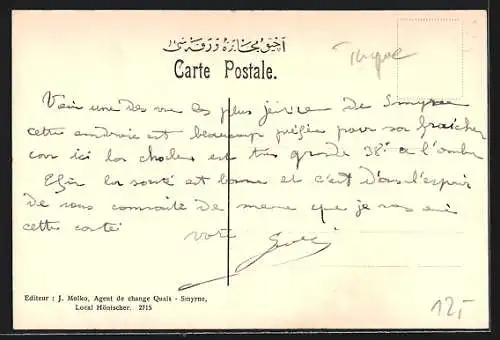 آچیق مخابره ورقه سی
Carte Postale.
Voir une des vue les plus de Smyrne
cette endroie est beaucoup préféré pour sa fraicher
car ici la chaleur est très grande 38° a l'ombre
la santé est bonne et c'est dans l'espoir
de vous de meme que je vous
cette carte
votre
Editeur : J. Molko, Agent de change Quais - Smyrne,
Local Hönischer. 2715
12,-